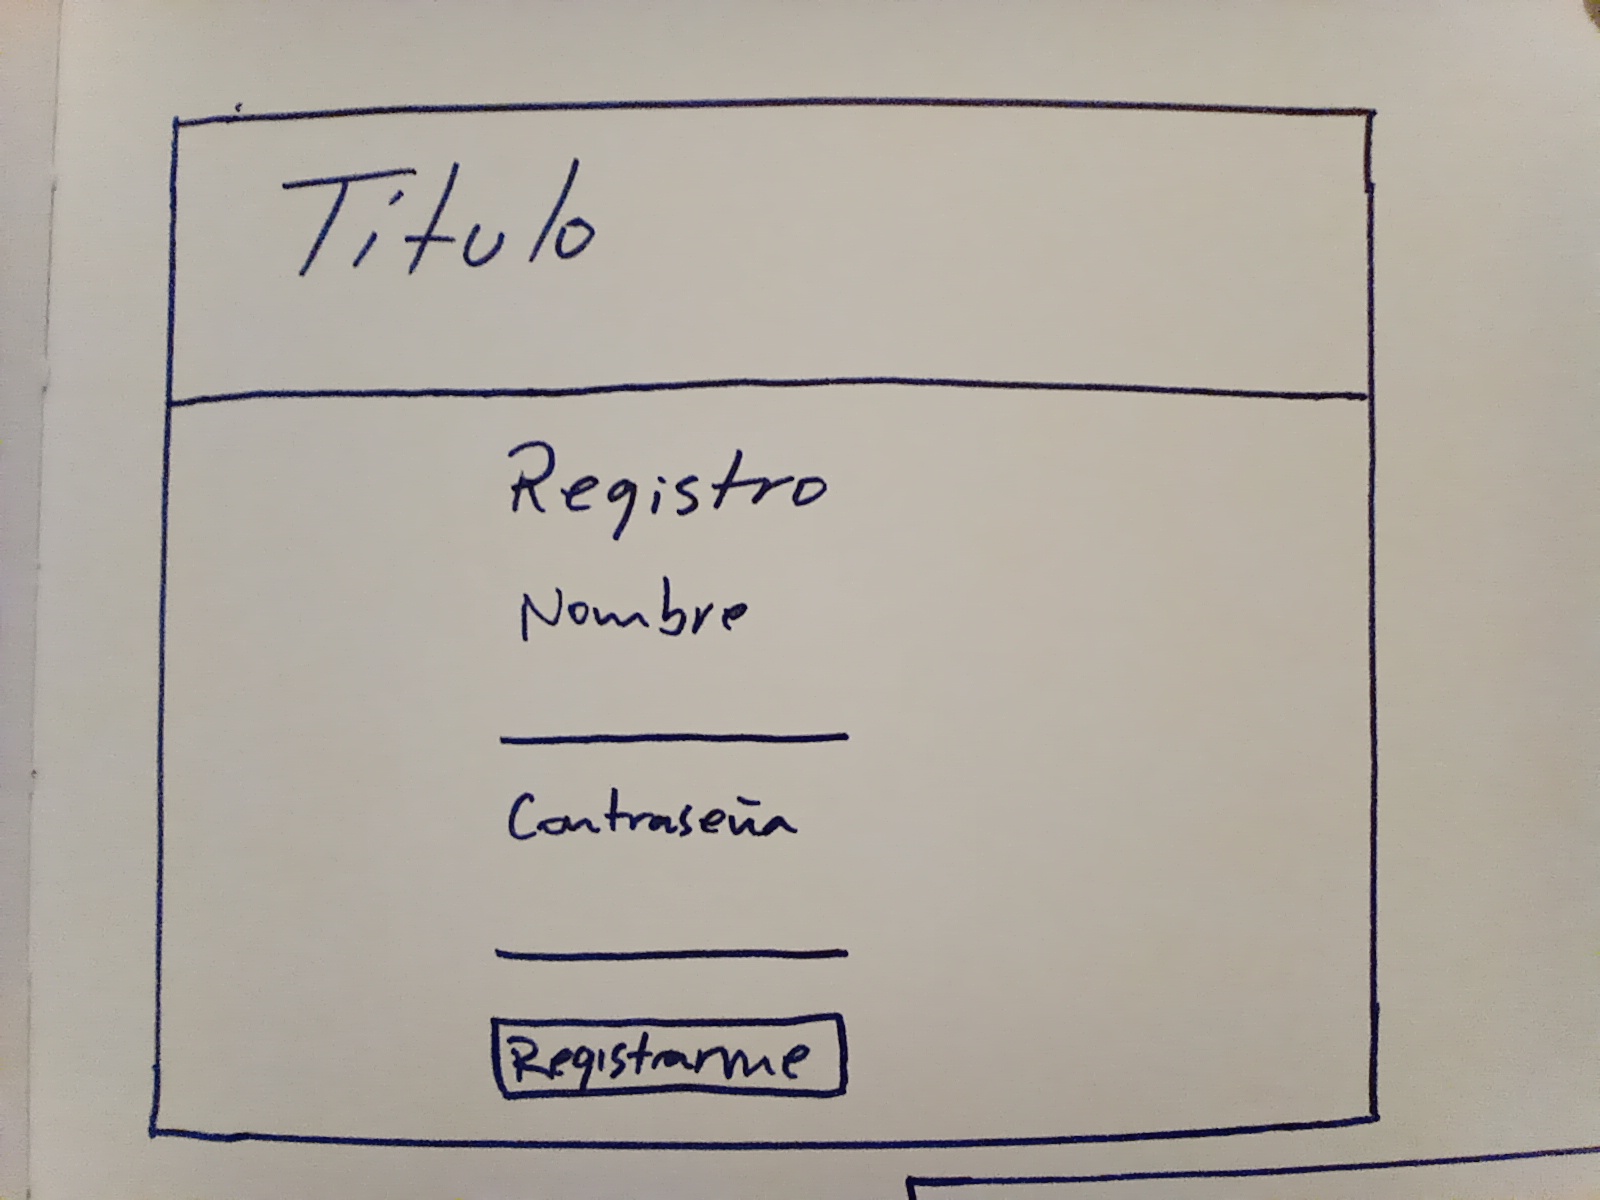 Título
Registro
Nombre
Contraseña
Registrarme